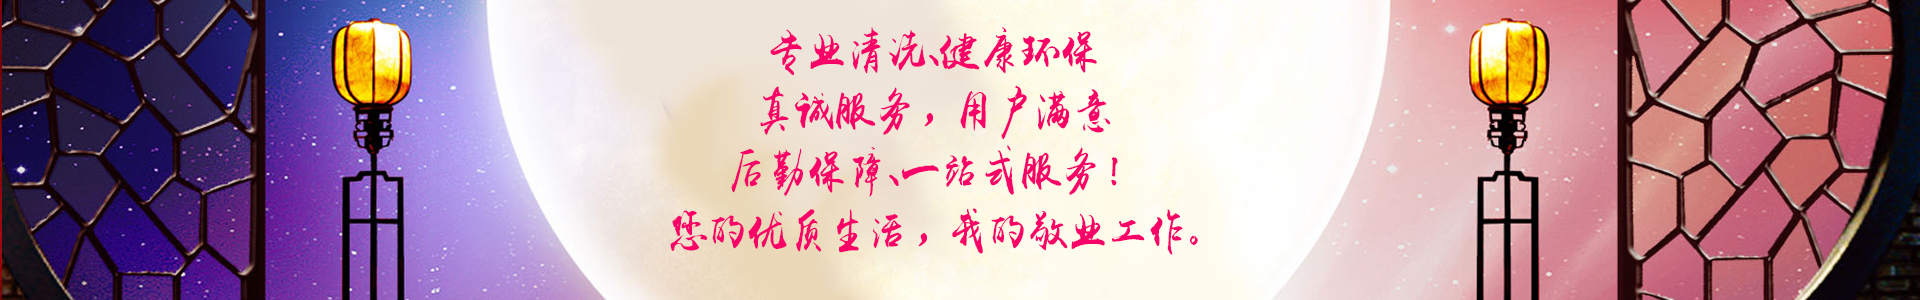 专业清洗、健康环保
真诚服务，用户满意
后勤保障、一站式服务！
您的优质生活，我的敬业工作。